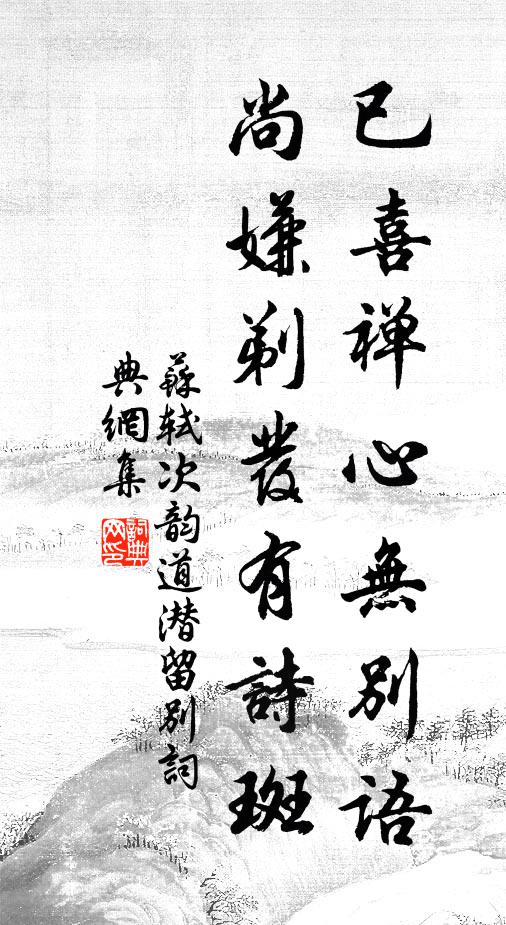 已喜禅心無別語
尚嫌剃發有詩斑
蘇轼次韵道潜留別詞
典網集
詞典网印